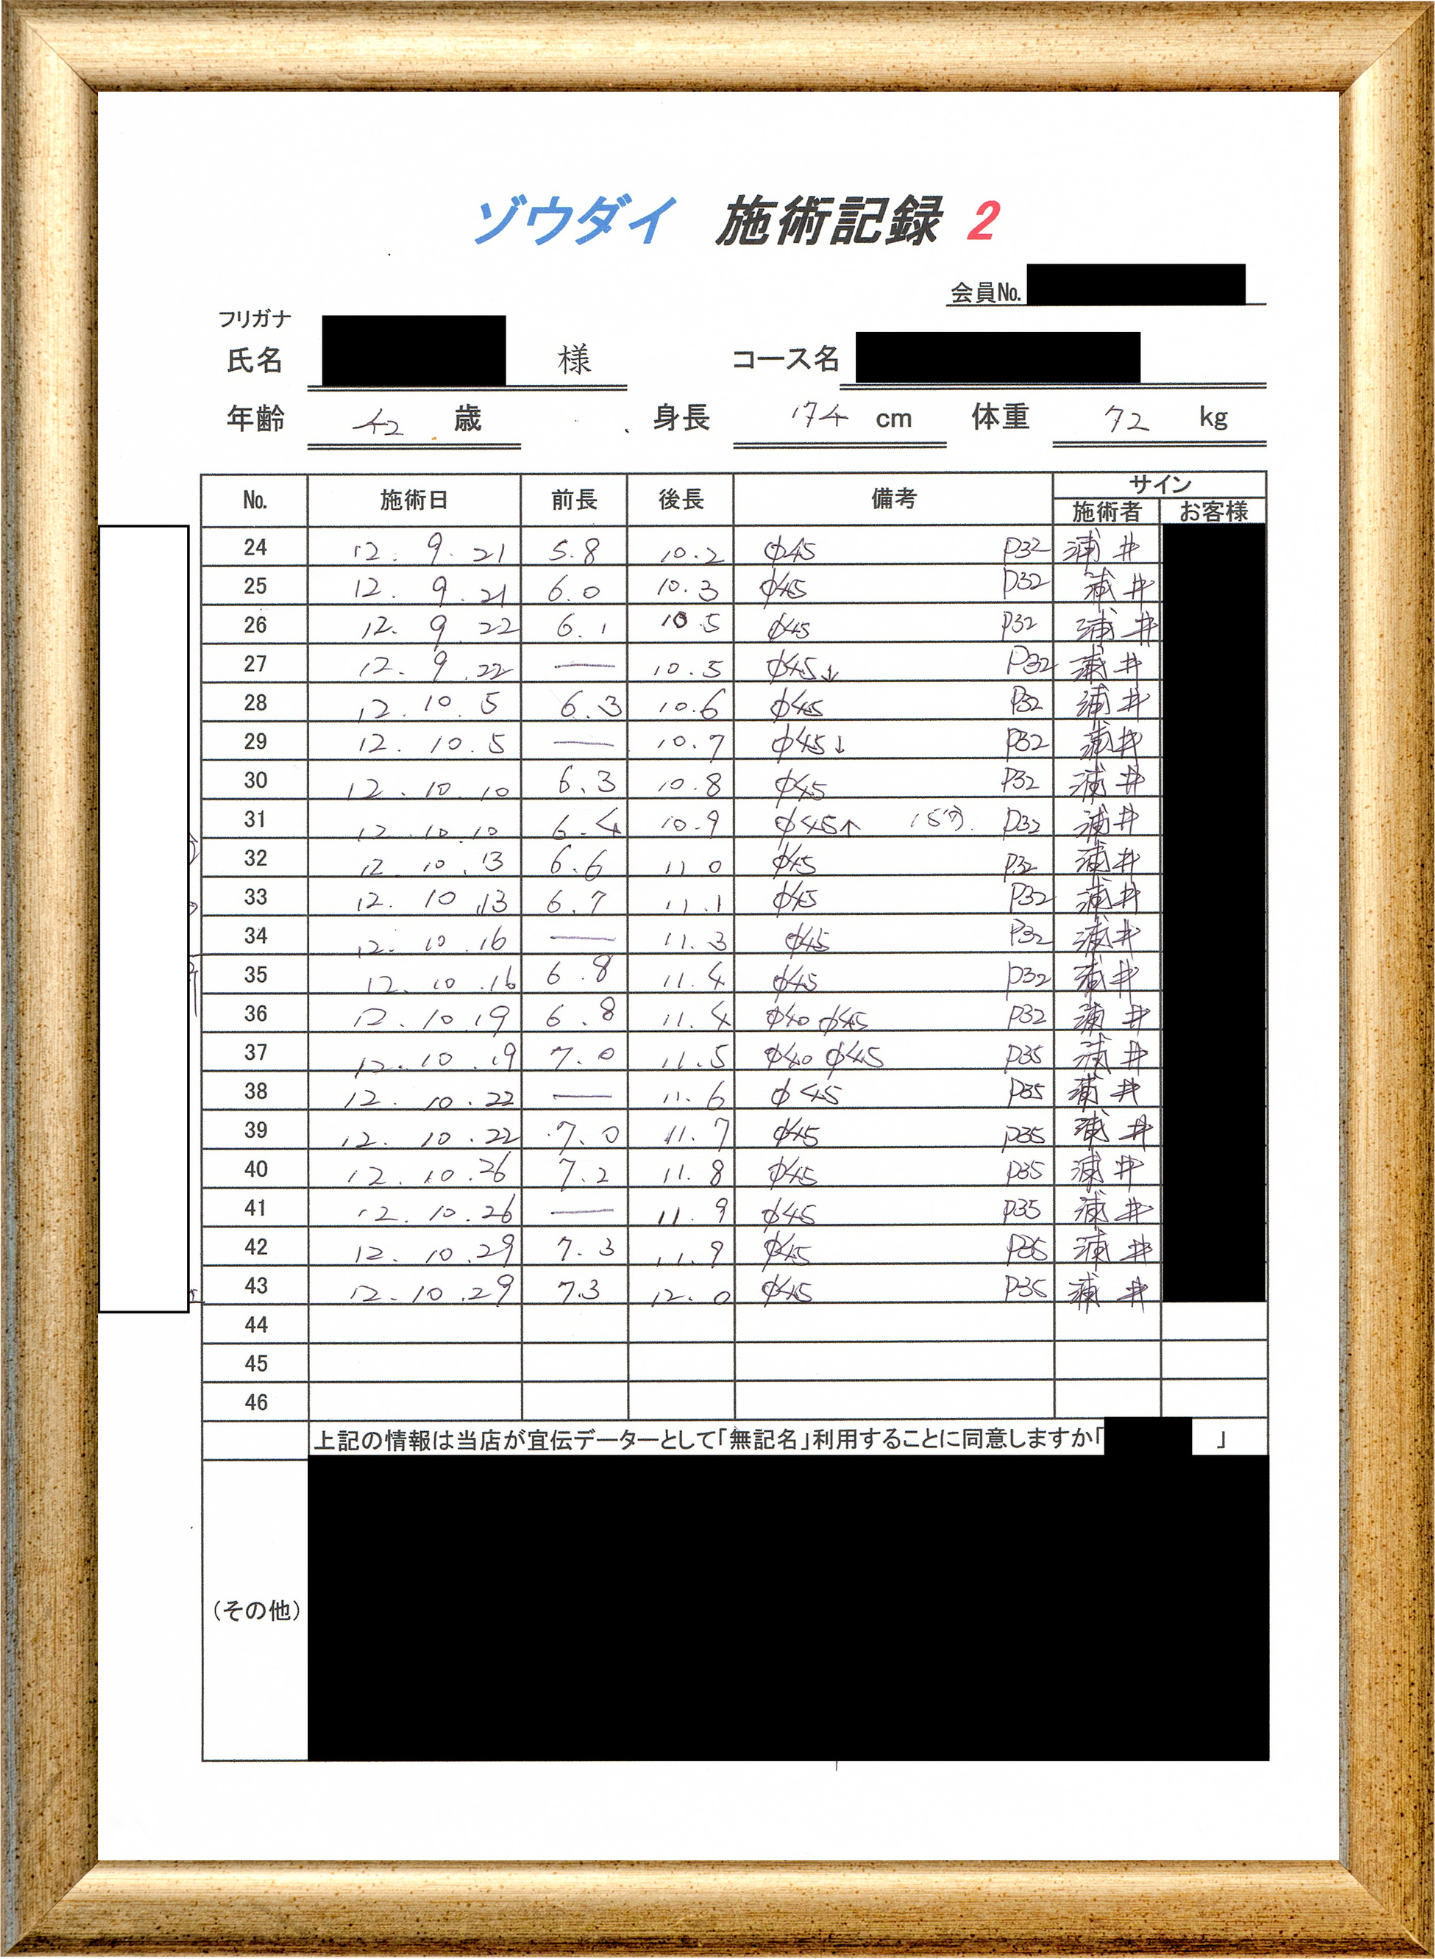 ゾウダイ 施術記録 2
会員No.
フリガナ
氏名 様 コース名
年齢 42 歳 身長 174 cm 体重 72 kg
No. 施術日 前長 後長 備考 サイン
施術者 お客様
24 12. 9. 21 5.8 10.2 φ45 P32 浦井
25 12. 9. 21 6.0 10.3 φ45 P32 浦井
26 12. 9. 22 6.1 10.5 φ45 P32 浦井
27 12. 9. 22 — 10.5 φ45↓ P32 浦井
28 12. 10. 5 6.3 10.6 φ45 P32 浦井
29 12. 10. 5 — 10.7 φ45↓ P32 浦井
30 12. 10. 10 6.3 10.8 φ45 P32 浦井
31 12. 10. 10 6.4 10.9 φ45↑ 15分 P32 浦井
32 12. 10. 13 6.6 11.0 φ45 P32 浦井
33 12. 10. 13 6.7 11.1 φ45 P32 浦井
34 12. 10. 16 — 11.3 φ45 P32 浦井
35 12. 10. 16 6.8 11.4 φ45 P32 浦井
36 12. 10. 19 6.8 11.4 φ40 φ45 P32 浦井
37 12. 10. 19 7.0 11.5 φ40 φ45 P35 浦井
38 12. 10. 22 — 11.6 φ45 P35 浦井
39 12. 10. 22 7.0 11.7 φ45 P35 浦井
40 12. 10. 26 7.2 11.8 φ45 P35 浦井
41 12. 10. 26 — 11.9 φ45 P35 浦井
42 12. 10. 29 7.3 11.9 φ45 P35 浦井
43 12. 10. 29 7.3 12.0 φ45 P35 浦井
44
45
46
上記の情報は当店が宣伝データーとして｢無記名｣利用することに同意しますか｢ ｣
(その他)